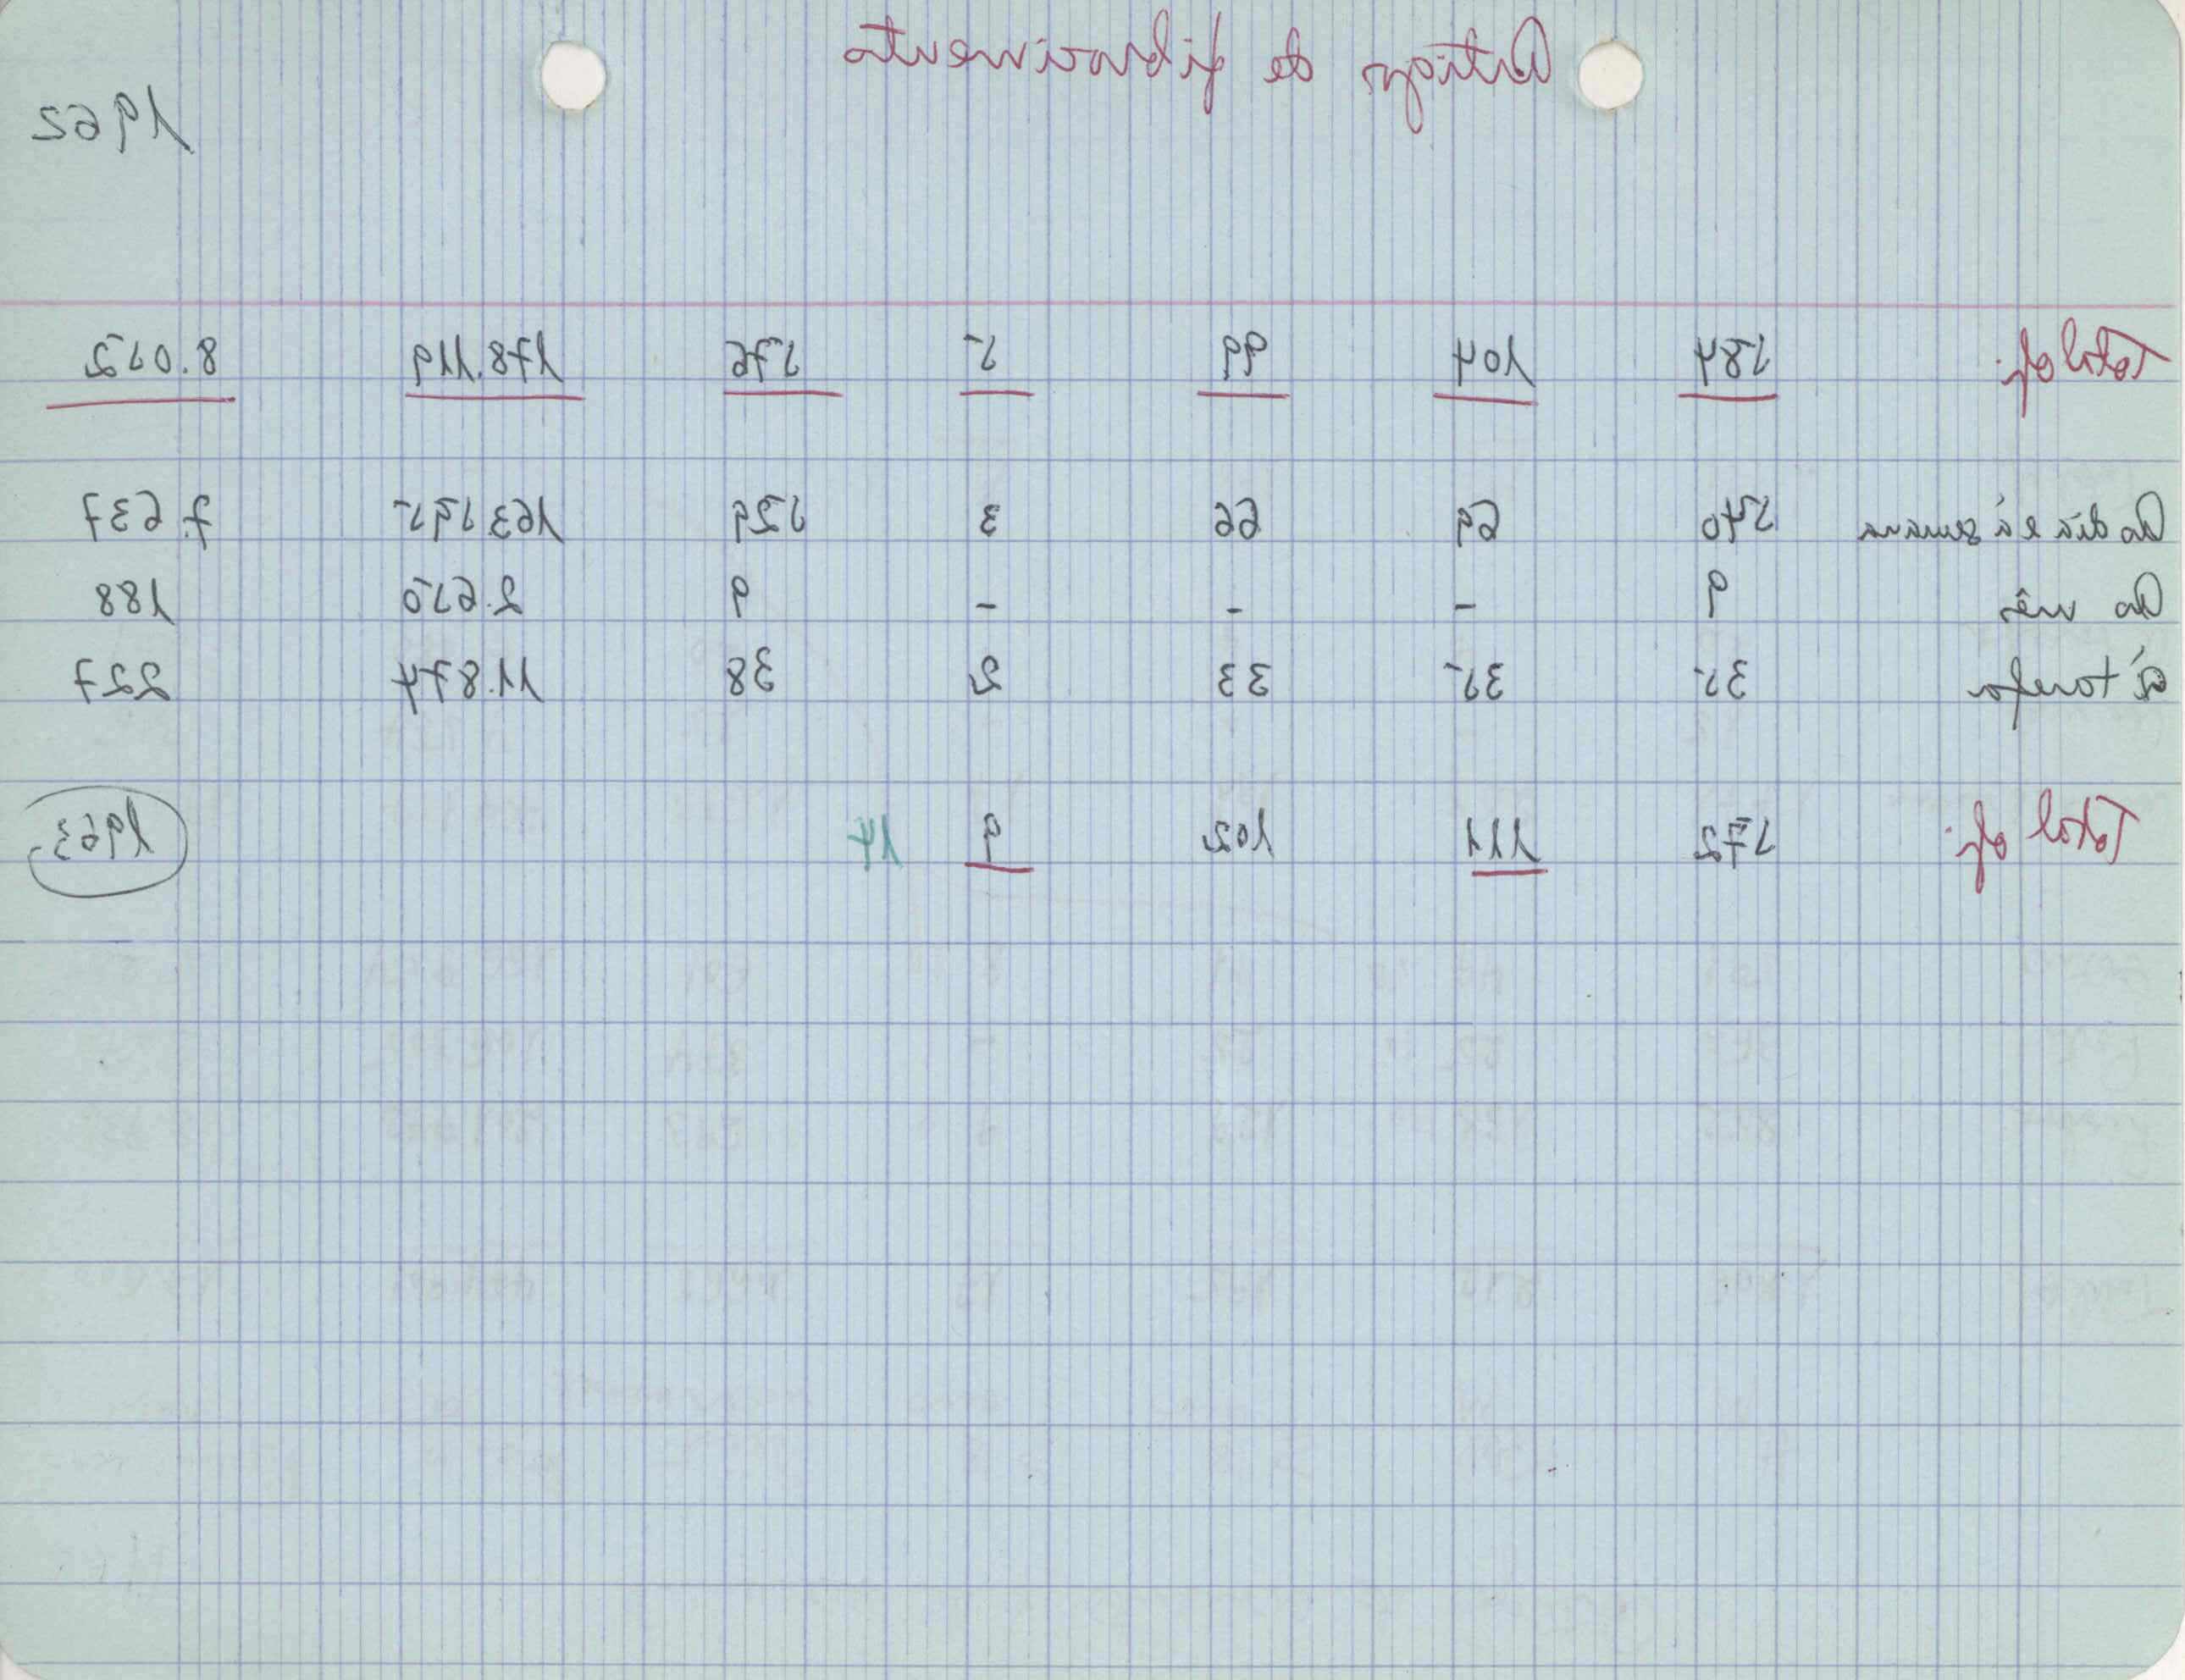 Artigos de fibrocimento
1962
Total of. 584 104 99 5 576 178.119 8.052
Ao dia e à semana 540 69 66 3 529 163.595 7.637
Ao mês 9 - - - 9 2.650 188
à tarefa 35 35 33 2 38 11.874 227
Total of. 572 111 102 9 14 1963